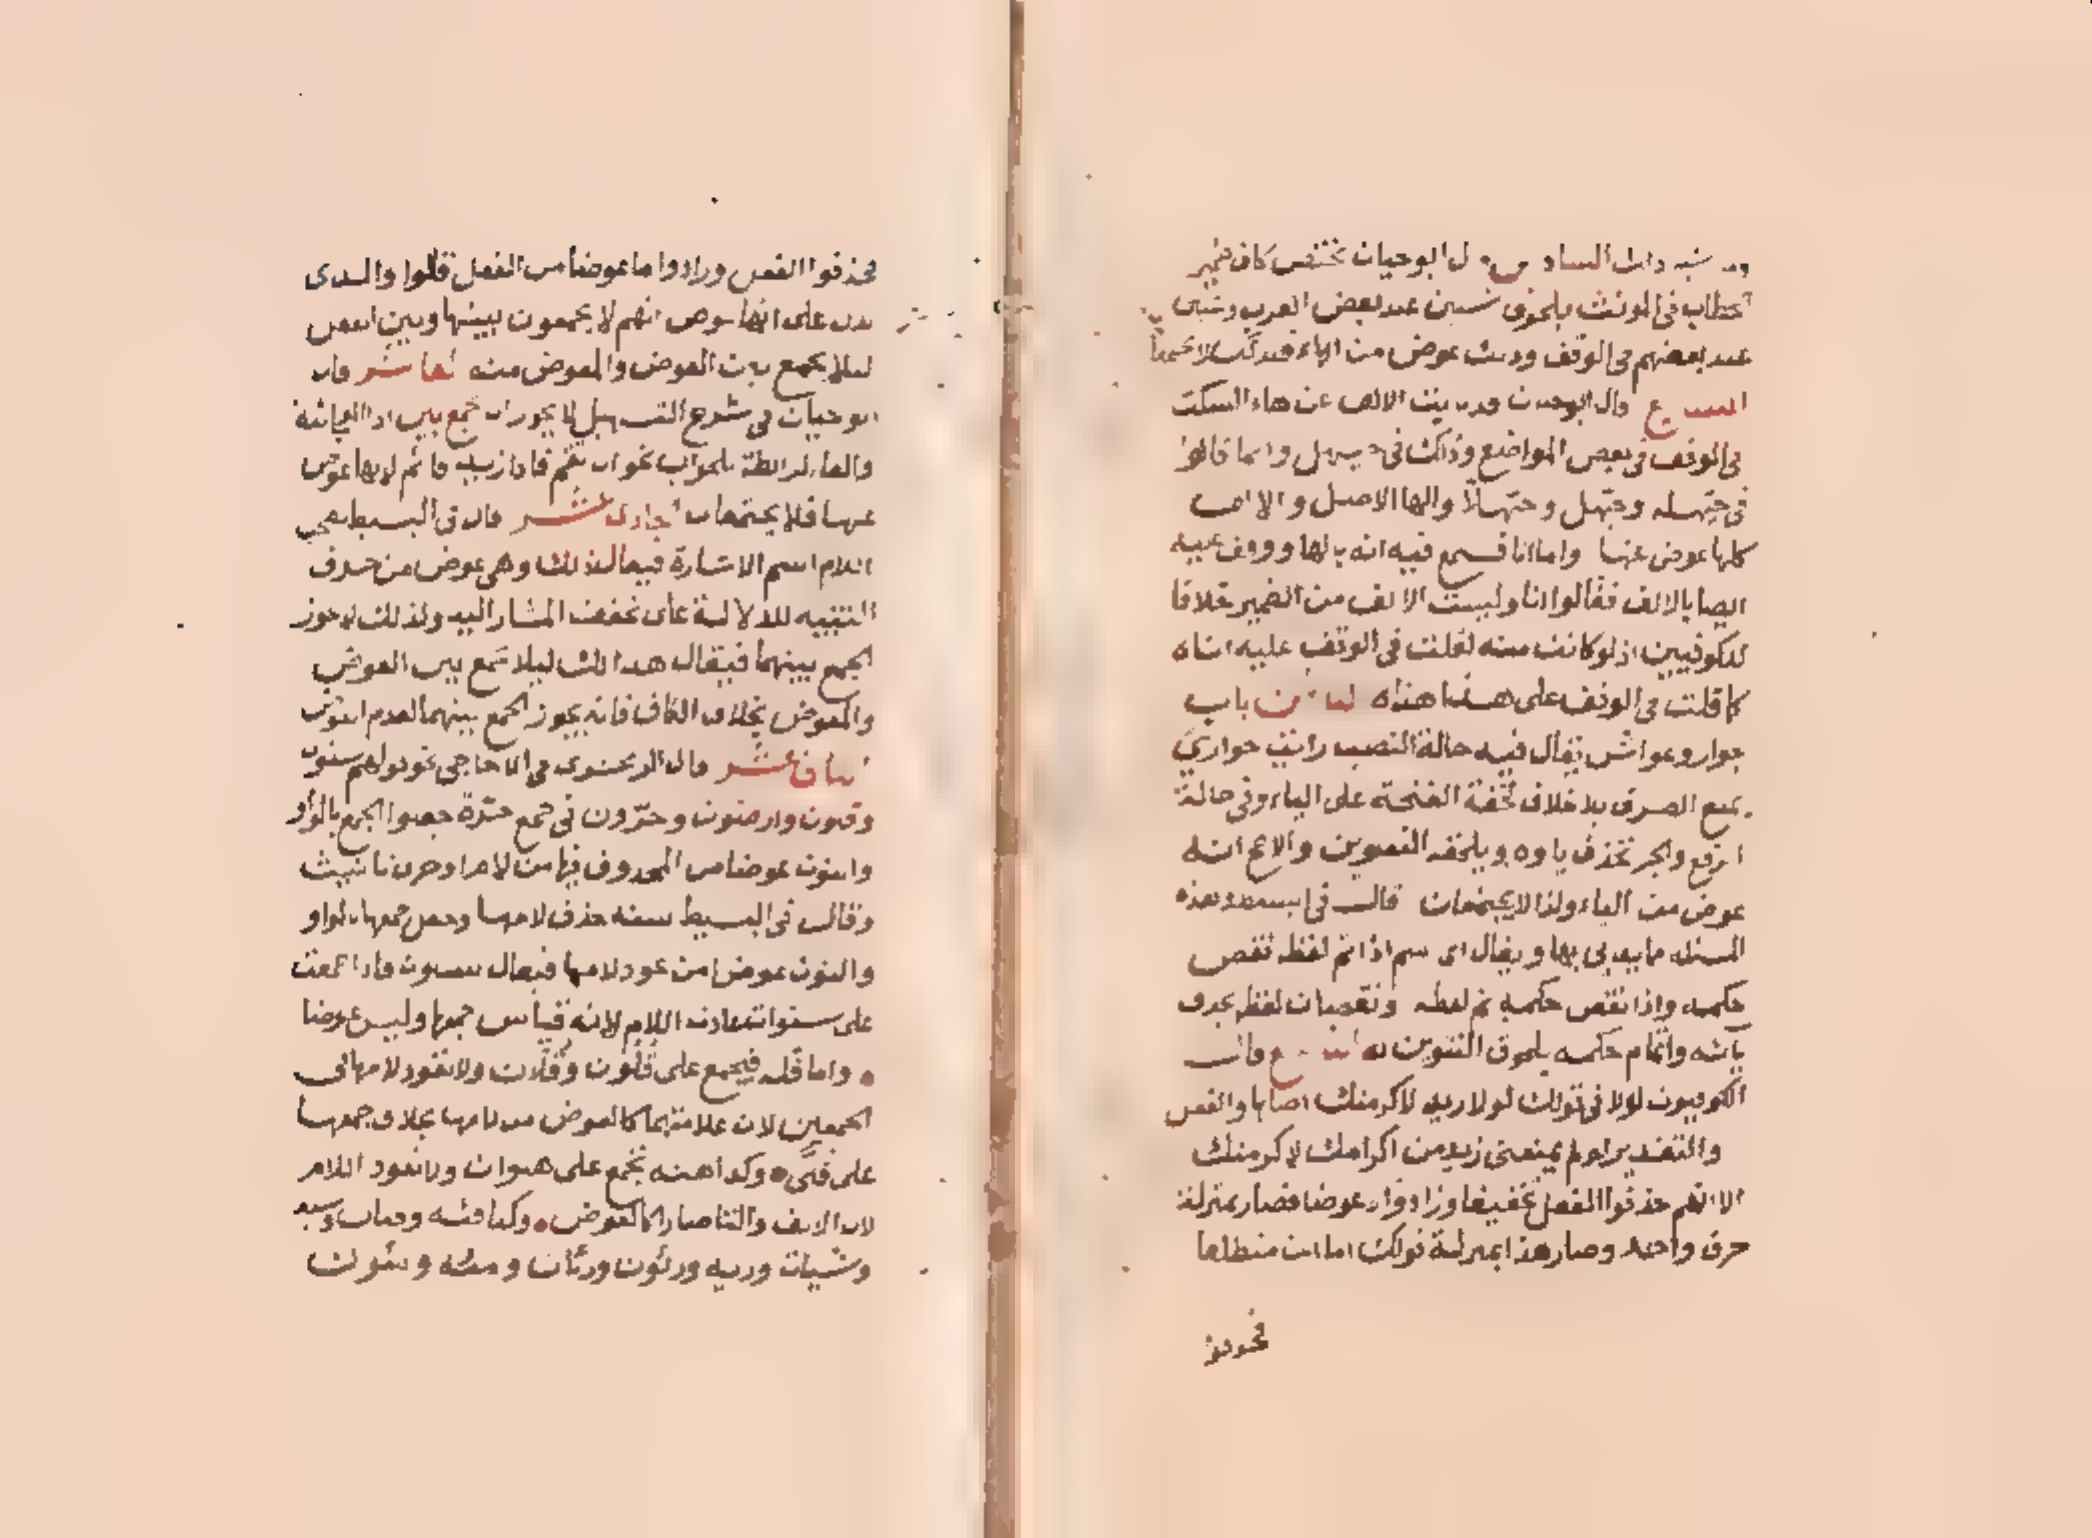 وما أشبه ذلك السادس قال ابو حيان تختص كاف ضمير
الخطاب في المونث بلحوق شين عند بعض العرب وسين
عند بعضهم في الوقف وذلك عوض من الهاء فلذلك لا يجتمعا
السابع قال ابو حيان وقد نابت الالف عن هاء السكت
في الوقف في بعض المواضع وذلك في حيهل وانا قالوا
في حيهله وحيهل وحيهلا والها الاصل والالف
كانها عوض عنها واما انا فسمع فيه انه بالها ووقف عليه
ايضا بالالف فقالوا انا وليست الالف من الضمير خلافا
للكوفيين اذ لو كانت منه لقلت في الوقف عليه اناه
كما قلت في الوقف على هذا هذاه الثامن باب
جوار وغواش يقال فيه حالة النصب رايت جواري
بمنع الصرف بلا خلاف لخفة الفتحة على الياء وفي حالة
الرفع والجر تحذف ياوه ويلحقه التنوين والاصح انه
عوض من الياء ولذا لا يجتمعان قال في البسيط وهذه
المسئلة مما يعايى بها ويقال اي اسم اذا تم لفظه نقص
حكمه واذا نقص حكمه تم لفظه ونقصان لفظه بحذف
يائه واتمام حكمه بلحوق التنوين به التاسع قال
الكوفيون لولا في قولك لولا زيد لاكرمتك اصلها والفعل
والتقدير لو لم يمنعني زيد من اكرامك لاكرمتك
الا انهم حذفوا الفعل تخفيفا وزادوا لا عوضا فصار بمنزلة
حرف واحد وصار هذا بمنزلة قولك اما انت منطلقا
فحذفوا
فحذفوا الفعل وزادوا ما عوضا من الفعل قالوا والذي
يدل على انها عوض انهم لا يجمعون بينها وبين الفعل
ليلا يجمع بين العوض والمعوض منه العاشر قال
ابو حيان في شرح التسهيل لا يجوز ان تجمع بين اذا الفجائية
والفاء الرابطة للجواب نحو ان تقم فاذا زيد قائم لانها عوض
عنها فلا يجتمعان الحادي عشر قال في البسيط تصحب
اللام اسم الاشارة فيقال ذلك وهي عوض من حرف
التنبيه للدلالة على تحقق المشار اليه ولذلك لا يجوز
الجمع بينهما فيقال هذا لك ليلا تجمع بين العوض
والمعوض بخلاف الكاف فانه يجوز الجمع بينهما لعدم العوض
الثاني عشر قال الزمخشري في الاحاجي نحو قولهم سنون
وقلون وارضون وحرون في جمع حرة جعلوا الجمع بالواو
والنون عوضا من المحذوف فيها من لام او حرف تانيث
وقال في البسيط سنه حذف لامها وجعل جمعها بالواو
والنون عوضا من عود لامها فيقال سنون فاذا جمعت
على سنوات عادت اللام لانه قياس جمعها وليس عوضا
واما قله فيجمع على قلون وقلات ولا تعود لامها في
الجمعين لان علامتهما كالعوض من لامها بخلاف جمعها
على قلى وكذا هنه تجمع على هنوات ولا تعود اللام
لان الالف والتا صارا كالعوض وكذا فئه وفئات وشيه
وشيات وريه ورئون ورئات ومئه ومئون